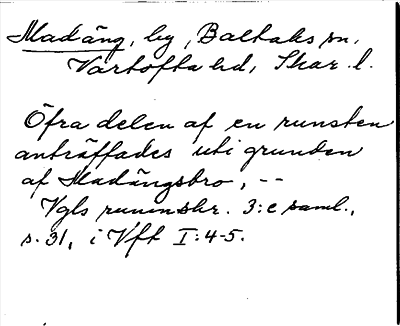 Madäng, by, Baltaks sn,
Vartofta hd, Skar. l.
Öfra delen af en runsten
anträffades uti grunden
af Madängsbro, --
Vgls runinskr. 3:e saml.,
s. 31, i Vft I:4-5.